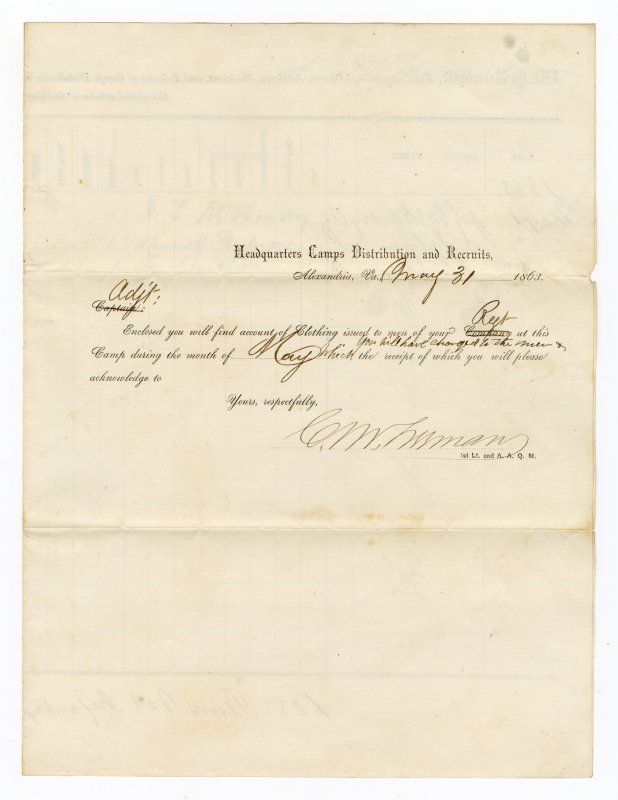 Headquarters Camps Distribution and Recruits,
Alexandria, Va. May 31 1863.
Adj't:
Captain:
Regt
Enclosed you will find account of Clothing issued to men of your Company at this
you will have charged to the men &
Camp during the month of May which the receipt of which you will please
acknowledge to
Yours, respectfully,
1st Lt. and A. A. Q. M.